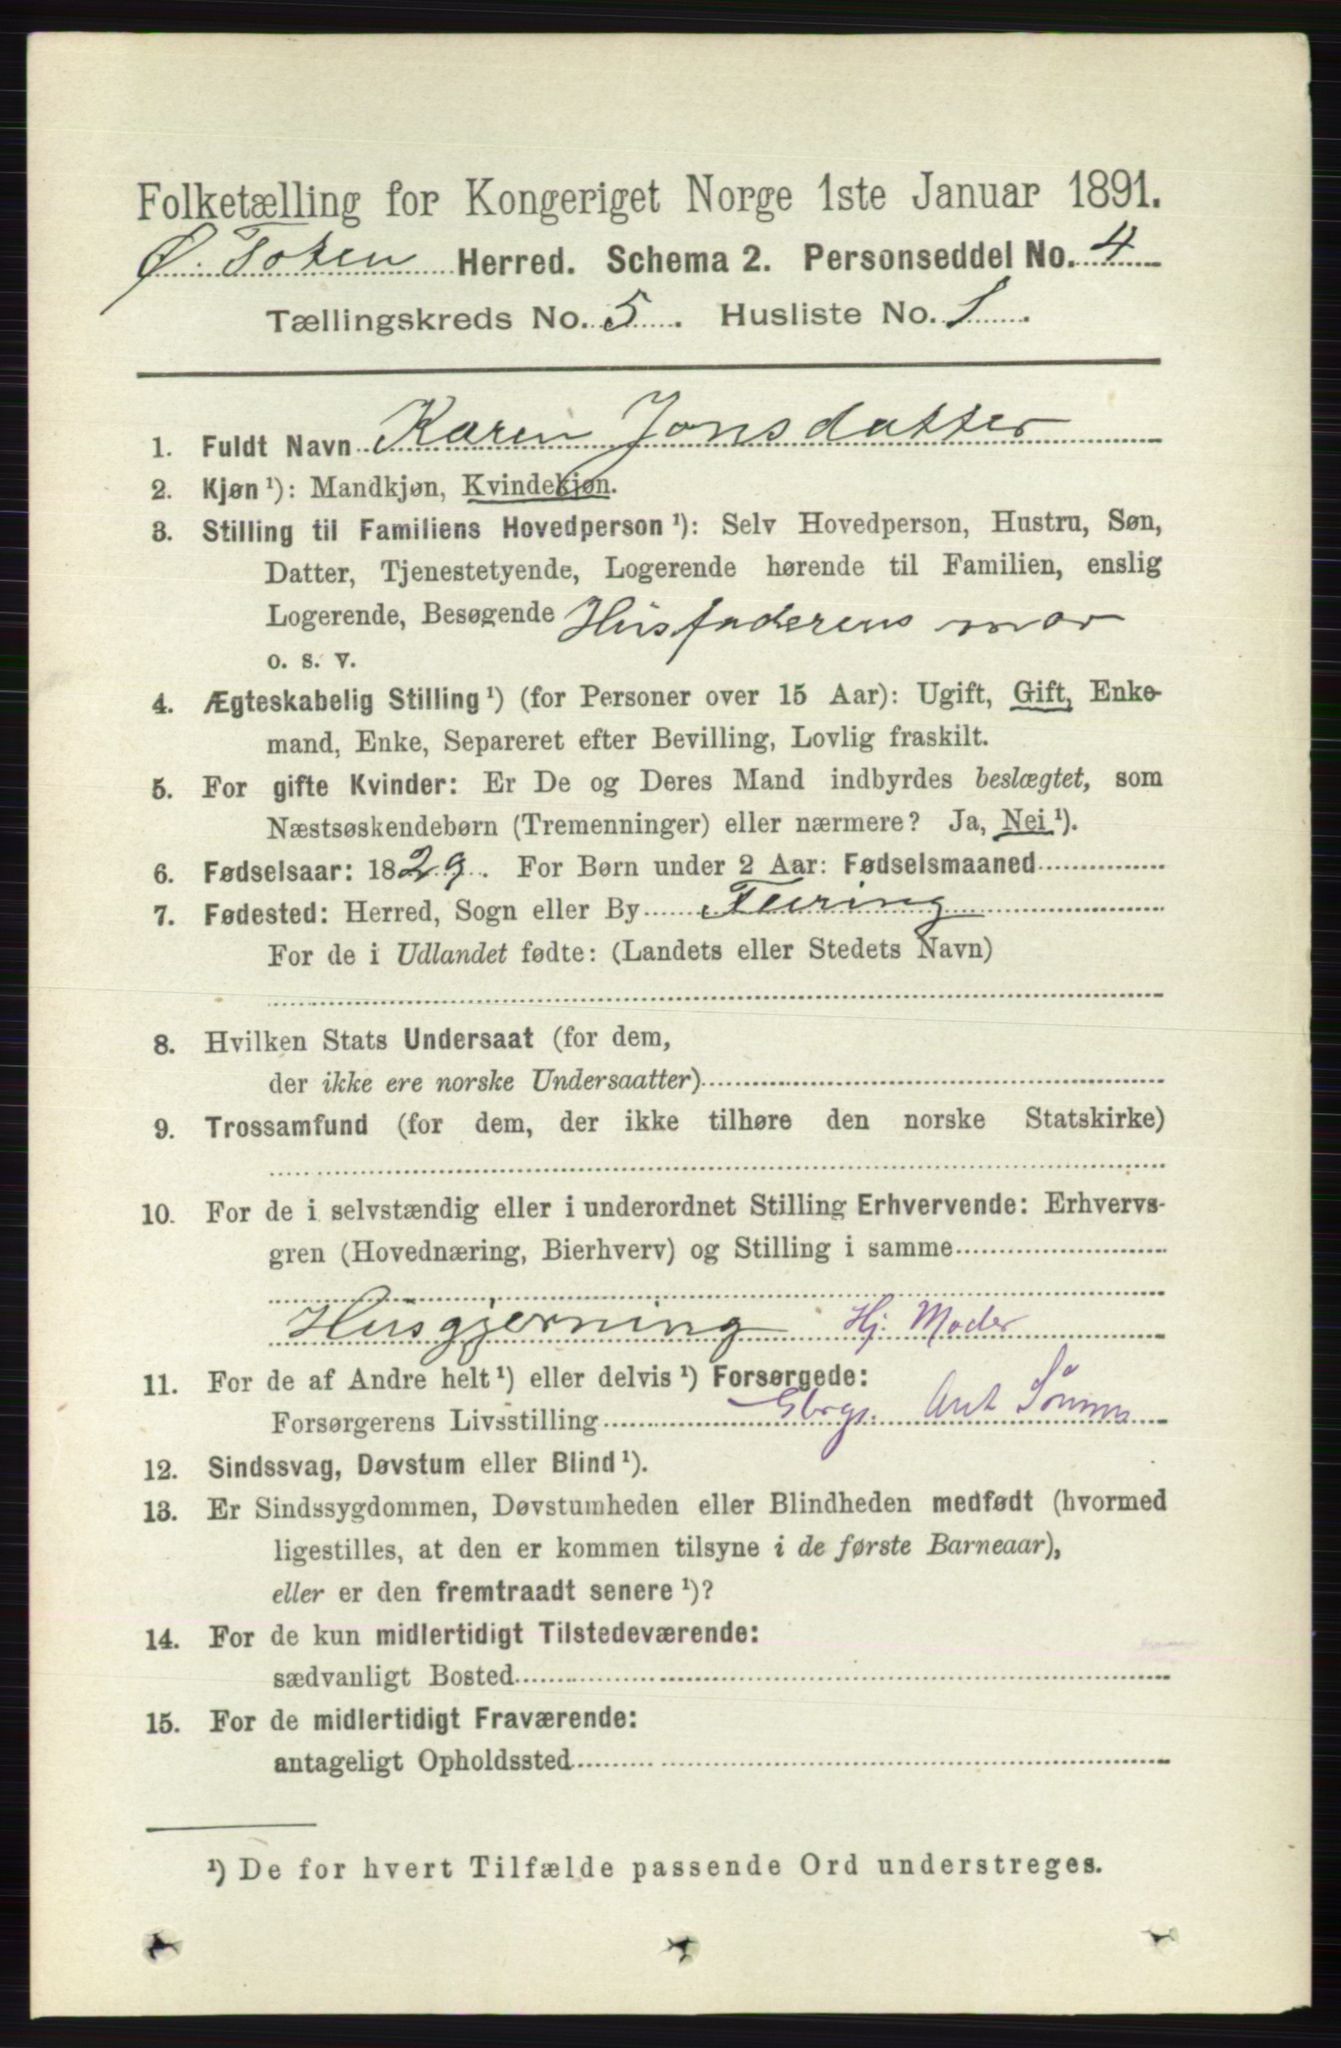 Folketælling for Kongeriget Norge 1ste Januar 1891.
Ø. Toten Herred. Schema 2. Personseddel No. 4
Tællingskreds No. 5. Husliste No. 1.
1. Fuldt Navn Karen Jonsdatter
2. Kjøn ¹): Mandkjøn, Kvindekjøn.
3. Stilling til Familiens Hovedperson ¹): Selv Hovedperson, Hustru, Søn,
Datter, Tjenestetyende, Logerende hørende til Familien, enslig
Logerende, Besøgende Husfaderens mor
o. s. v.
4. Ægteskabelig Stilling ¹) (for Personer over 15 Aar): Ugift, Gift, Enke-
mand, Enke, Separeret efter Bevilling, Lovlig fraskilt.
5. For gifte Kvinder: Er De og Deres Mand indbyrdes beslægtet, som
Næstsøskendebørn (Tremenninger) eller nærmere? Ja, Nei ¹).
6. Fødselsaar: 1829. For Børn under 2 Aar: Fødselsmaaned
7. Fødested: Herred, Sogn eller By Feiring
For de i Udlandet fødte: (Landets eller Stedets Navn)
8. Hvilken Stats Undersaat (for dem,
der ikke ere norske Undersaatter)
9. Trossamfund (for dem, der ikke tilhøre den norske Statskirke)
10. For de i selvstændig eller i underordnet Stilling Erhvervende: Erhvervs-
gren (Hovednæring, Bierhverv) og Stilling i samme
Husgjerning Hj. Moder
11. For de af Andre helt ¹) eller delvis ¹) Forsørgede:
Forsørgerens Livsstilling Gbrgs. Ant
12. Sindssvag, Døvstum eller Blind ¹).
13. Er Sindssygdommen, Døvstumheden eller Blindheden medfødt (hvormed
ligestilles, at den er kommen tilsyne i de første Barneaar),
eller er den fremtraadt senere ¹)?
14. For de kun midlertidigt Tilstedeværende:
sædvanligt Bosted
15. For de midlertidigt Fraværende:
antageligt Opholdssted
¹) De for hvert Tilfælde passende Ord understreges.